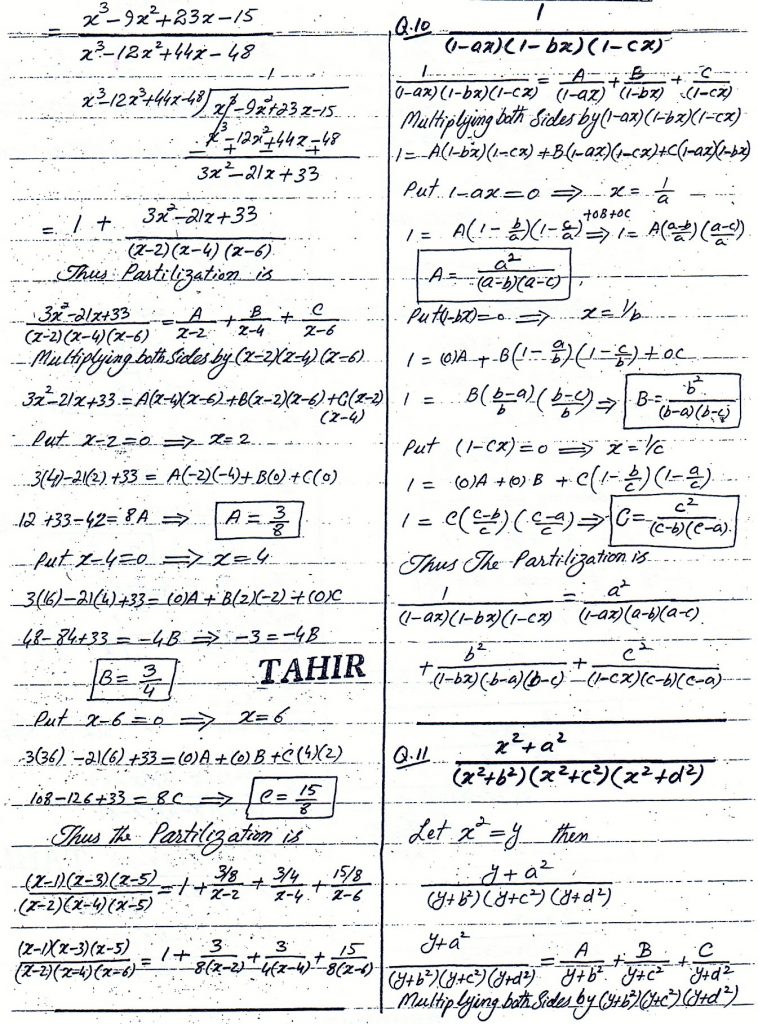 = x³-9x²+23x-15 / x³-12x²+44x-48
1
x³-12x³+44x-48 ) x³-9x²+23x-15
x³-12x²+44x-48
- + - +
3x²-21x+33
= 1 + 3x²-21x+33 / (x-2)(x-4)(x-6)
Thus Partilization is
3x²-21x+33 / (x-2)(x-4)(x-6) = A / x-2 + B / x-4 + C / x-6
Multiplying both Sides by (x-2)(x-4)(x-6)
3x²-21x+33 = A(x-4)(x-6)+B(x-2)(x-6)+C(x-2)
(x-4)
Put x-2=0 ⟹ x=2
3(4)-21(2)+33 = A(-2)(-4)+B(0)+C(0)
12+33-42=8A ⟹ A = 3/8
Put x-4=0 ⟹ x=4
3(16)-21(4)+33=(0)A+B(2)(-2)+(0)C
48-84+33 = -4B ⟹ -3=-4B
B = 3/4
TAHIR
Put x-6=0 ⟹ x=6
3(36)-21(6)+33=(0)A+(0)B+C(4)(2)
108-126+33 = 8C ⟹ C = 15/8
Thus the Partilization is
(x-1)(x-3)(x-5) / (x-2)(x-4)(x-5) = 1 + 3/8 / x-2 + 3/4 / x-4 + 15/8 / x-6
(x-1)(x-3)(x-5) / (x-2)(x-4)(x-6) = 1 + 3 / 8(x-2) + 3 / 4(x-4) + 15 / 8(x-6)
Q.10 1 / (1-ax)(1-bx)(1-cx)
1 / (1-ax)(1-bx)(1-cx) = A / (1-ax) + B / (1-bx) + C / (1-cx)
Multiplying both Sides by (1-ax)(1-bx)(1-cx)
1 = A(1-bx)(1-cx)+B(1-ax)(1-cx)+C(1-ax)(1-bx)
Put 1-ax=0 ⟹ x = 1/a
1 = A(1-b/a)(1-c/a)+0B+0C ⟹ 1 = A(a-b/a)(a-c/a)
A = a² / (a-b)(a-c)
Put(1-bx)=0 ⟹ x=1/b
1 = (0)A + B(1-a/b)(1-c/b)+0C
1 = B(b-a/b)(b-c/b) ⟹ B = b² / (b-a)(b-c)
Put (1-cx)=0 ⟹ x=1/c
1 = (0)A+(0)B + C(1-b/c)(1-a/c)
1 = C(c-b/c)(c-a/c) ⟹ C = c² / (c-b)(c-a)
Thus The Partilization is
1 / (1-ax)(1-bx)(1-cx) = a² / (1-ax)(a-b)(a-c)
+ b² / (1-bx)(b-a)(b-c) + c² / (1-cx)(c-b)(c-a)
Q.11 x²+a² / (x²+b²)(x²+c²)(x²+d²)
Let x²=y then
y+a² / (y+b²)(y+c²)(y+d²)
y+a² / (y+b²)(y+c²)(y+d²) = A / y+b² + B / y+c² + C / y+d²
Multiplying both Sides by (y+b²)(y+c²)(y+d²)